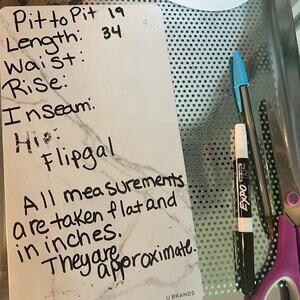 Pit to Pit 19
Length: 34
Waist:
Rise:
Inseam:
Hip:
Flipgal
All measurements
are taken flat and
in inches.
They are
approximate.
U BRANDS
EXPO